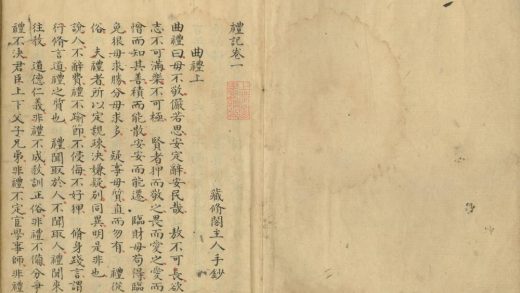 禮記卷一
藏脩閣主人手鈔
曲禮上
曲禮曰毋不敬儼若思安定辭安民哉 敖不可長欲
志不可滿樂不可極 賢者狎而敬之畏而愛之愛而
憎而知其善積而能散安安而能遷 臨財毋苟得臨
免狠毋求勝分毋求多 疑事毋質直而勿有 禮從
俗 夫禮者所以定親疎決嫌疑別同異明是非也
說人不辭費禮不踰節不侵侮不好狎 脩身踐言謂
行脩言道禮之質也 禮聞取於人不聞取人禮聞來
往教 道德仁義非禮不成教訓正俗非禮不備分爭
禮不決君臣上下父子兄弟非禮不定宦學事師非禮